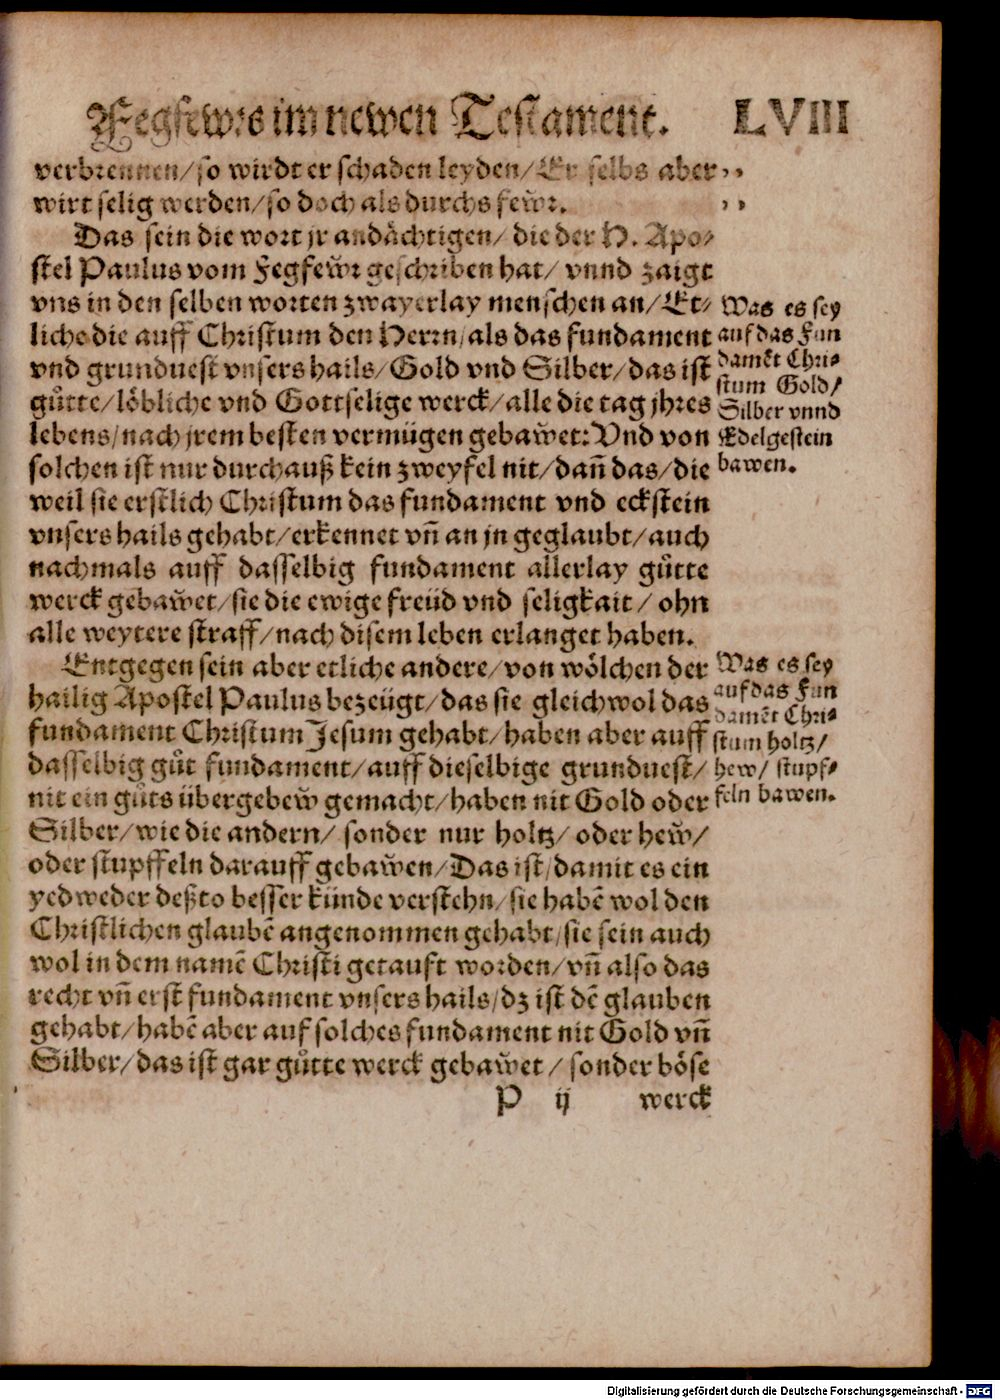 Fegfewrs im newen Testament. LVIII
verbrennen/so wirdt er schaden leyden/Er selbs aber ,,
wirt selig werden/so doch als durchs few̃r. ,,
Das sein die wort jr andächtigen/die der H. Apo⸗
stel Paulus vom Fegfew̃r geschriben hat/vnnd zaigt
vns in den selben worten zwayerlay menschen an/Et⸗
liche die auff Christum den Herrn/als das fundament
vnd grunduest vnsers hails/Gold vnd Silber/das ist
gůtte/löbliche vnd Gottselige werck/alle die tag jhres
lebens/nach jrem besten vermügen gebaw̃et: Vnd von
solchen ist nur durchauß kein zweyfel nit/dañ das/die
weil sie erstlich Christum das fundament vnd eckstein
vnsers hails gehabt/erkennet vñ an jn geglaubt/auch
nachmals auff dasselbig fundament allerlay gůtte
werck gebaw̃et/sie die ewige freüd vnd seligkait/ohn
alle weytere straff/nach disem leben erlanget haben.
Was es sey
auf das Fun
damẽt Chri⸗
stum Gold/
Silber vnnd
Edelgestein
bawen.
Entgegen sein aber etliche andere/von wölchen der
hailig Apostel Paulus bezeügt/das sie gleichwol das
fundament Christum Jesum gehabt/haben aber auff
dasselbig gůt fundament/auff dieselbige grunduest/
nit ein gůts übergebew̃ gemacht/haben nit Gold oder
Silber/wie die andern/sonder nur holtz/oder hew̃/
oder stupffeln darauff gebaw̃en/Das ist/damit es ein
yedweder deßto besser künde verstehn/sie habẽ wol den
Christlichen glaubẽ angenommen gehabt/sie sein auch
wol in dem namẽ Christi getauft worden/vñ also das
recht vñ erst fundament vnsers hails/dz ist dẽ glauben
gehabt/habẽ aber auf solches fundament nit Gold vñ
Silber/das ist gar gůtte werck gebaw̃et/sonder böse
Was es sey
auf das Fun
damẽt Chri⸗
stum holtz/
hew/stupf⸗
feln bawen.
P ij werck
Digitalisierung gefördert durch die Deutsche Forschungsgemeinschaft - DFG